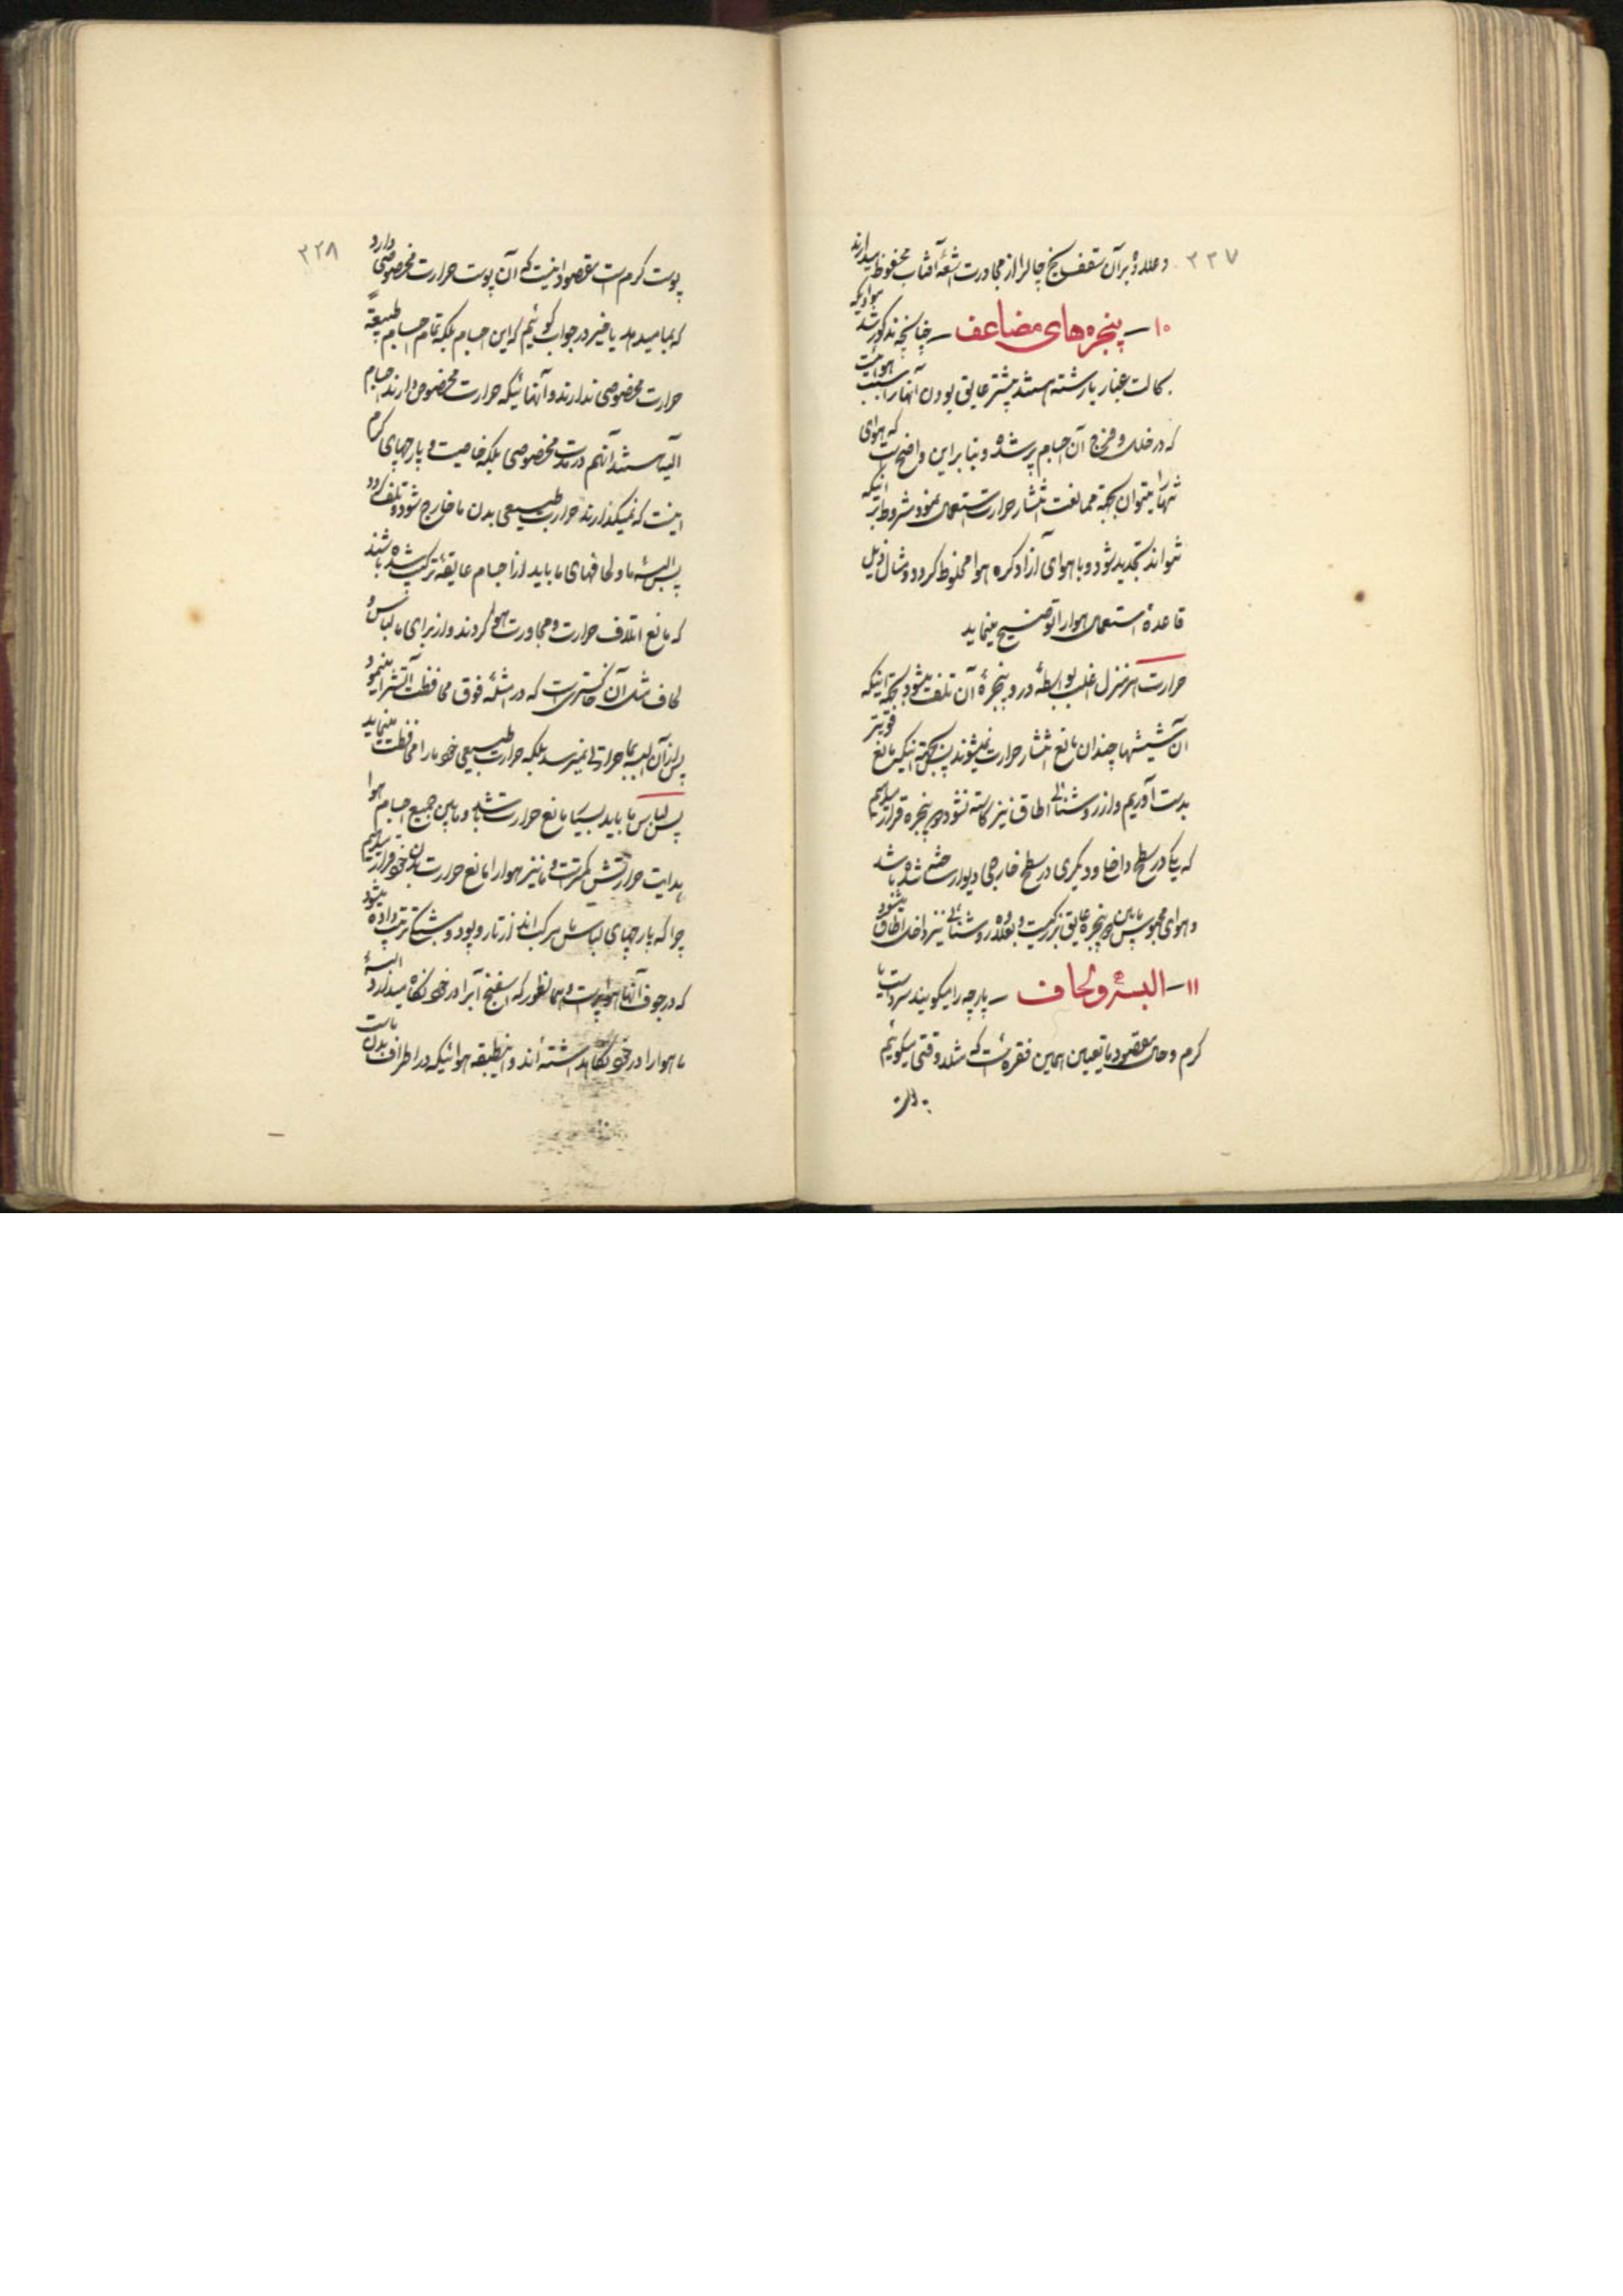 ۲۲۷
و علاوه بر آن سقف یخ چالرا از مجاورت اشعهٔ آفتاب محفوظ میدارند
۱۰ – پنجره‌های مضاعف – چنانچه مذکور شد موادیکه
بحالت غبار یا رشته هستند بیشتر عایق بودن آنها را سبب هوائیست
که در خلل و فرج آن اجسام پر شده و بنا براین واضح است که هوای
تنها را میتوان بجهة ممانعت انتشار حرارت استعمال نمود مشروط بر اینکه
نتواند تجدید شود و با هوای آزاد کره هوا مخلوط گردد و مثال ذیل
قاعدهٔ استعمال هوا را توضیح مینماید
حرارت هر منزل اغلب بواسطهٔ در و پنجرهٔ آن تلف میشود بجهة اینکه
آن شیشها چندان مانع انتشار حرارت نمیشوند پس بجهة اینکه مانع قویتر
بدست آوریم و از روشنائی اطاق نیز کاسته نشود دو پنجره قرار میدهیم
که یکی در سطح داخل و دیگری در سطح خارجی دیوار ساخته شده باشد
و هوای محبوس مابین دو پنجره عایق بزرگیست و بعلاوه روشنائی نیز داخل اطاق میشود
۱۱ – البسهٔ و لحاف – پارچه را میگویند سرد است یا
گرم و حال مقصود ما تعیین همین فقره است که مثلا وقتی میگوئیم
۲۲۸
پوست گرم است مقصود اینست که آن پوست حرارت مخصوصی دارد
که بما میدهد یا خیر در جواب گوئیم که این اجسام بلکه تمام اجسام طبیعةً
حرارت مخصوصی ندارند و آنهائیکه حرارت مخصوص دارند اجسام
آلیه هستند آنهم در مدت مخصوصی بلکه خاصیت پارچهای گرم
اینست که نمیگذارند حرارت طبیعی بدن ما خارج شود و تلف گردد
پس البسهٔ ما و لحافهای ما باید از اجسام عایقه ترکیب شده باشند
که مانع اتلاف حرارت و مجاورت هوا گردند و از برای ما لباس و
لحاف مثل آن خاکستریست که در امثلهٔ فوق محافظت آتش را مینمود
پس از آن البسه بما حرارتی نمیرسد بلکه حرارت طبیعی خود ما را محافظت مینماید
پس لباس ما باید بسیار مانع حرارت باشد و مابین جمیع اجسام هوا
هدایت حرارتش کمتر است و ما نیز هوا را مانع حرارت بدن خود قرار میدهیم
چرا که پارچهای لباس ما مرکب‌اند از تار و پود و ترتیب داده میشود
که در جوف آنها هوا پر است و همانطور که اسفنج آب را در خود نگاه میدارد البسهٔ
ما هوا را در خود نگاهداشته‌اند و این طبقه هوائیکه در اطراف بدن ماست